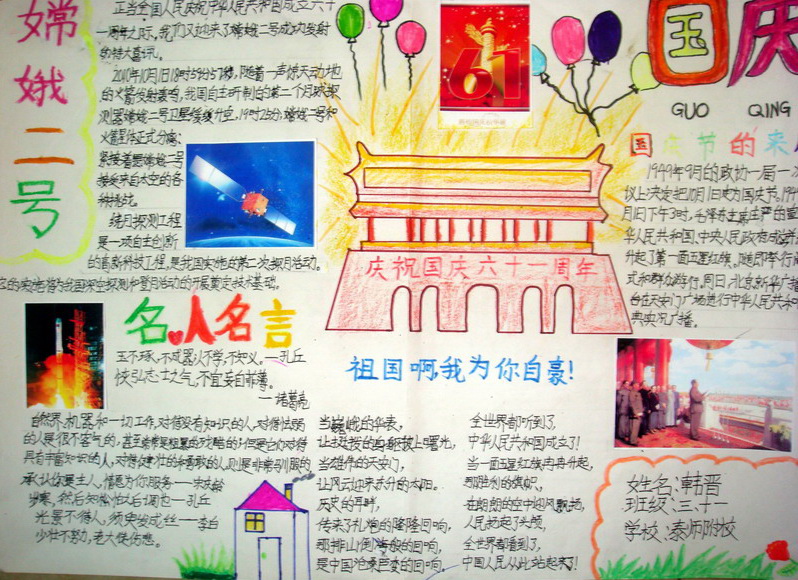 嫦娥二号
正当全国人民庆祝中华人民共和国成立六十
一周年之际,我们又迎来了嫦娥二号成功发射
的特大喜讯。
2010年10月1日18时59分57秒,随着一声惊天动地
的火箭发射轰鸣,我国自主研制的第二个月球探
测器嫦娥二号卫星缓缓升空。19时25分,嫦娥二号和
火箭星体正式分离;
紧接着嫦娥二号
接受来自太空的各
种挑战。
绕月探测工程
是一项自主创新
的高新科技工程,是我国实施的第二次探月活动。
它的实施将为我国深空探测和登月活动的开展奠定技术基础。
61
国庆
GUO QING
国庆节的来
1949年9月的政协一届一次
议上决定把10月1日定为国庆节。
月1日下午3时,毛泽东主席庄严的宣
华人民共和国、中央人民政府成立并
升起了第一面五星红旗。随即举行阅
式和群众游行。同日,北京新华广播
台在天安门广场进行中华人民共和
典实况广播。
庆祝国庆六十一周年
名人名言
玉不琢,不成器;人不学,不知义。—孔丘
快引志士之气,不宜妄自菲薄。
—诸葛亮
自然界,机器和一切工作,对待没有知识的人,对待怯弱
的人是很不客气的,甚至常常是粗暴的残酷的;但是它们对待
具有丰富知识的人,对待健壮的和勇敢的人则是非常驯服的
承认你是主人,情愿为你服务——宋庆龄
岁寒,然后知松柏之后凋也—孔丘
光景不待人,须臾发成丝——李白
少壮不努力,老大徒伤悲。
祖国啊,我为你自豪!
当巍峨的华表,
让挺拔的身躯披上曙光,
当雄伟的天安门,
让风云迎来东升的太阳。
历史的耳畔,
传来了礼炮的隆隆回响,
那排山倒海般的回响,
是中国沧桑巨变的回响。
全世界都听到了,
中华人民共和国成立了!
当一面五星红旗冉冉升起,
那胜利的旗帜,
在朗朗的空中迎风飘扬,
人民扬起了头颅,
全世界都看到了,
中国人民从此站起来了!
姓名:韩晋
班级:三、十一
学校:泰师附校